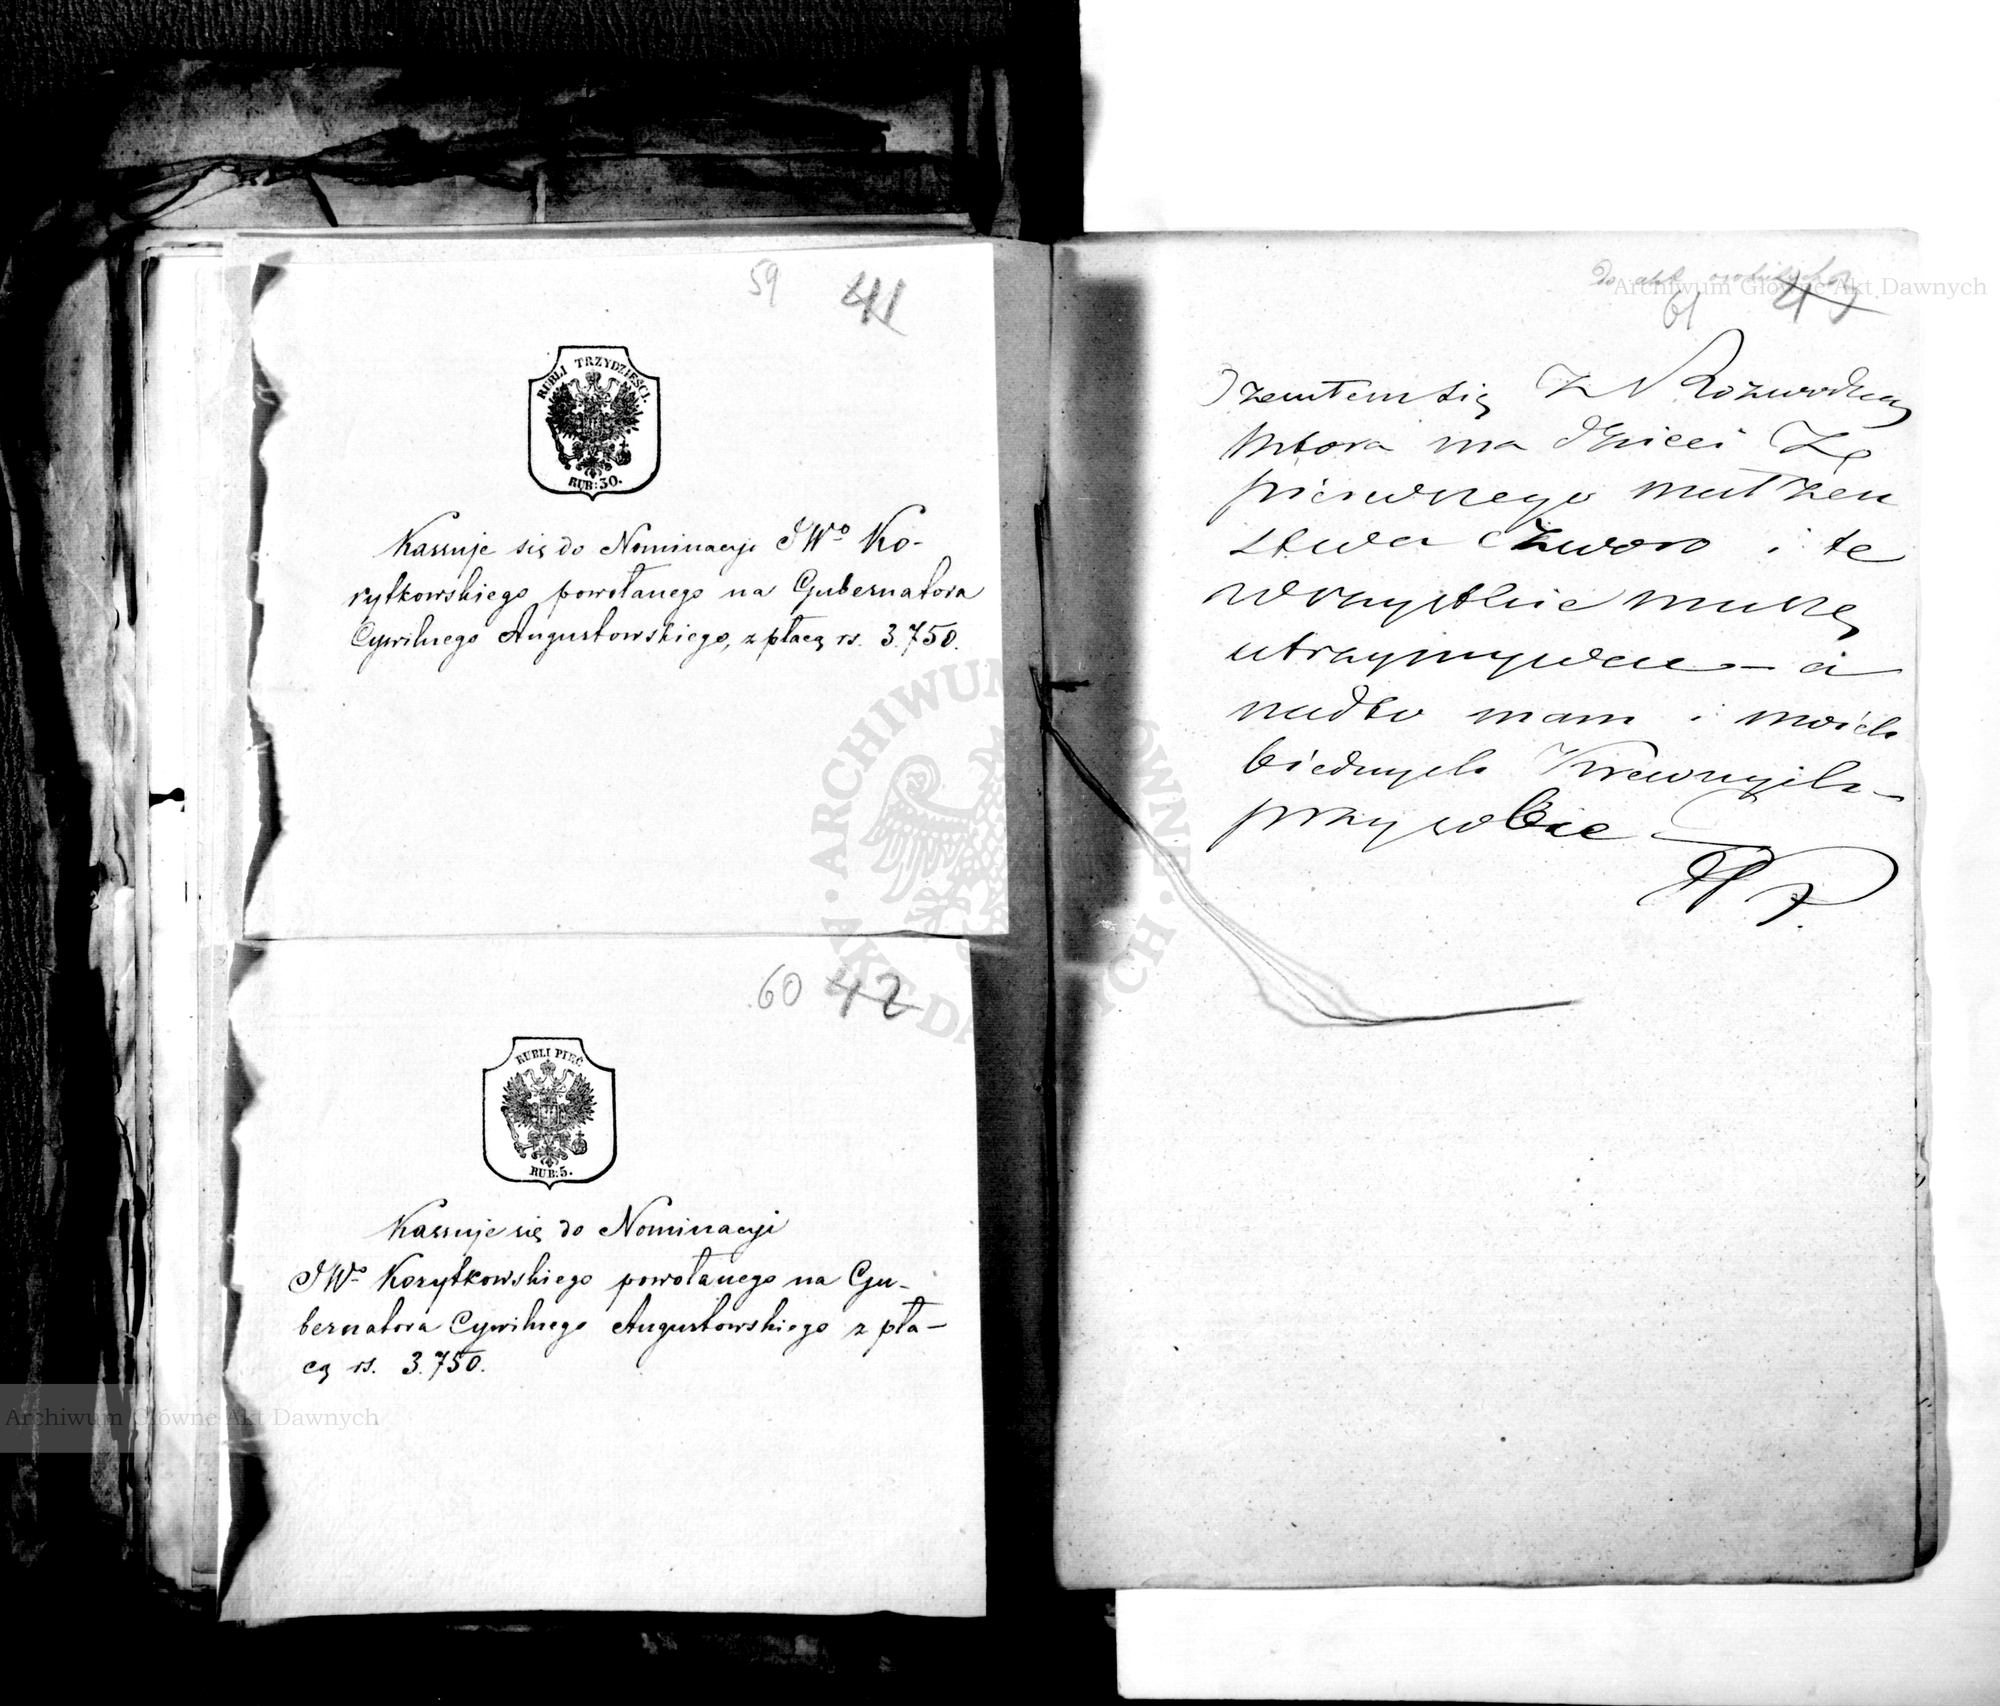 59 41
RUBLI TRZYDZIEŚCI.
RUB: 30.
Kassuje się do Nominacyi JWo Ko-
rytkowskiego powołanego na Gubernatora
Cywilnego Augustowskiego, z płacą rs. 3.750.
60 42
RUBLI PIĘĆ
RUB: 5.
Kassuje się do Nominacyi
JWo Korytkowskiego powołanego na Gu-
bernatora Cywilnego Augustowskiego z pła-
cą rs. 3.750.
Do akt osobistych
61 43
Ożeniłem się z Rozwodką
ktora ma dzieci Ze
pierwszego małżeń
stwa Czworo i te
wszystkie muszę
utrzymywac – a
nadto mam i moich
biednych Krewnych –
przy sobie
ARCHIWUM GŁÓWNE AKT DAWNYCH
Archiwum Główne Akt Dawnych
Archiwum Główne Akt Dawnych